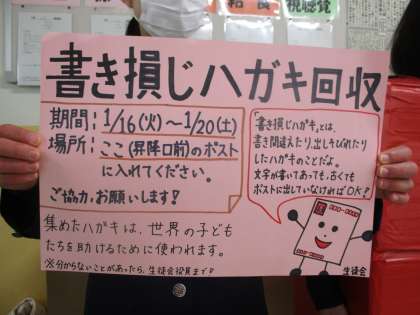 書き損じハガキ回収
期間：1/16(火)～1/20(土)
場所：ここ(昇降口前)のポスト
に入れてください。
ご協力、お願いします！
集めたハガキは、世界の子ども
たちを助けるために使われます。
※分からないことがあったら、生徒会役員まで！
「書き損じハガキ」とは、
書き間違えたり、出しそびれたり
したハガキのことだよ。
文字が書いてあっても、古くても
ポストに出していなければOK！
生徒会